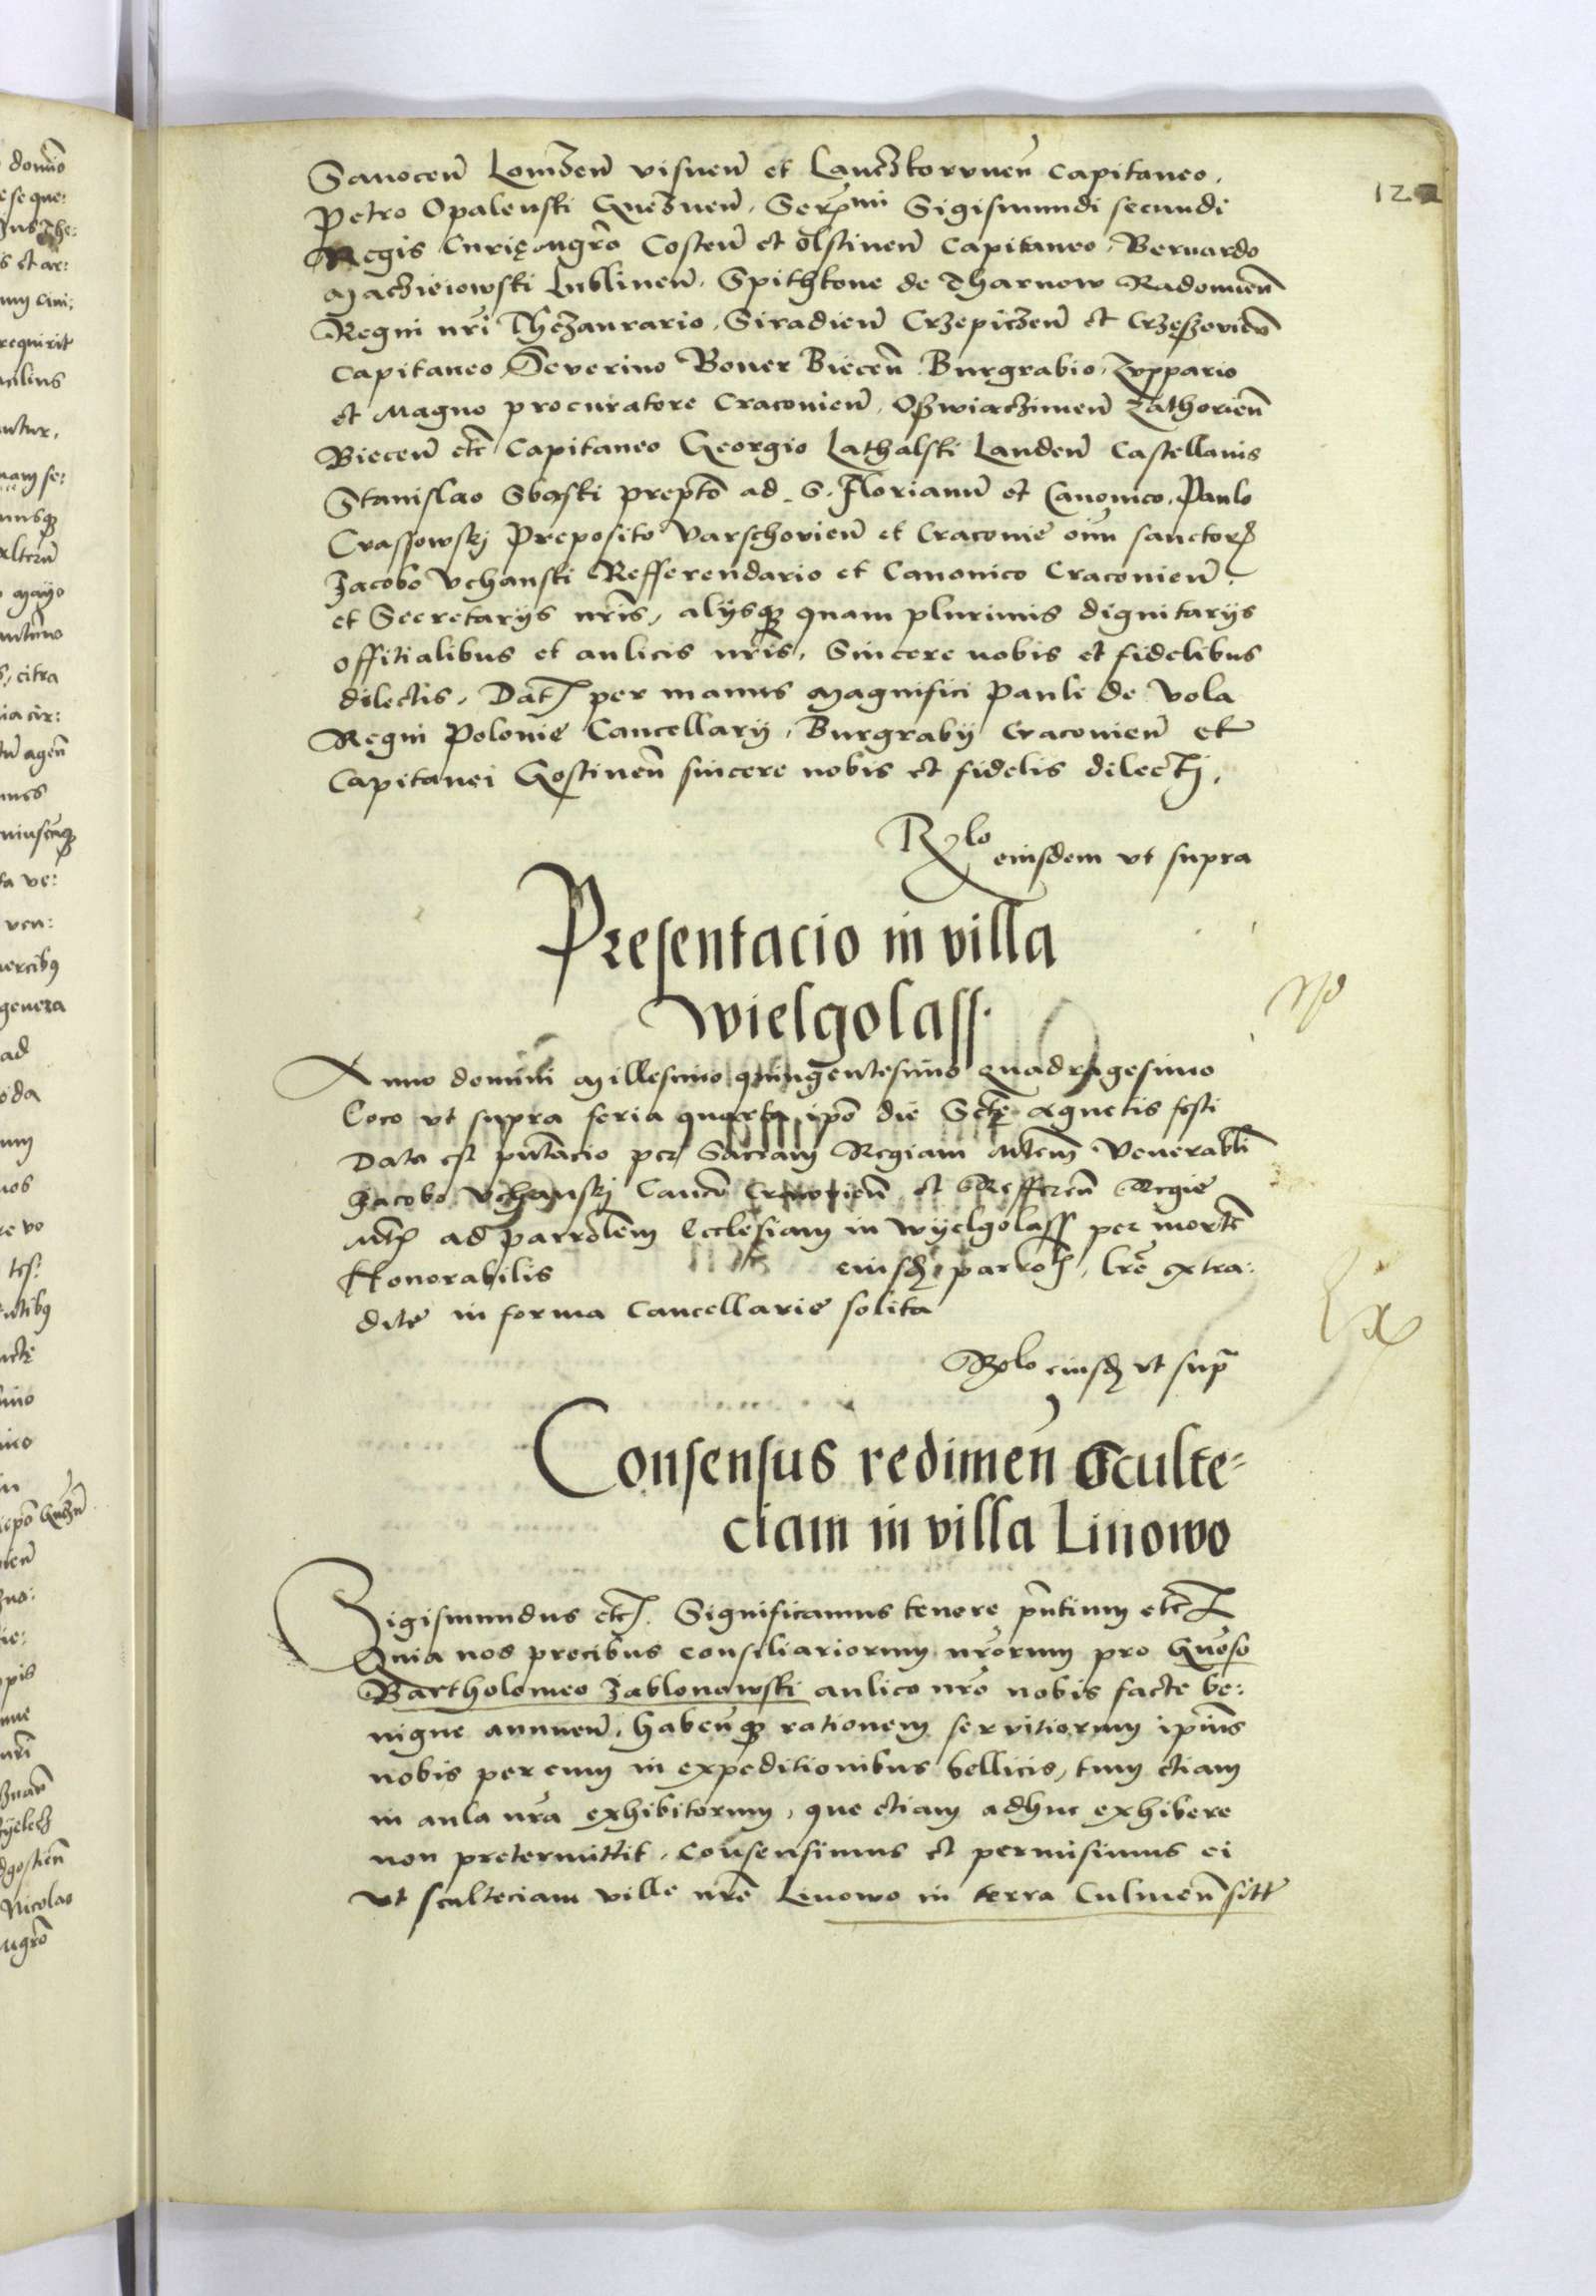 122
Sanocen̄ Lomzen̄ visnen̄ et Lanczkorunen̄ Capitaneo.
Petro Opalenski Gneznen̄. Serᵐⁱ Sigismundi secundi
Regis Curię mgr̄o Costen̄ et olstinen̄ Capitaneo. Bernardo
Maczieiowski Lublinen̄. Spithkone de Tharnow Radomien̄
Regni nr̄i Thezaurario. Siradien̄ Crzepiczen̄ et Crzęszovien̄
Capitaneo Severino Boner Biecen̄ Burgrabio, Zuppario
et Magno procuratore Craconien̄. Oswiaczimen̄ Zathorien̄
Biecen̄ etc̄ Capitaneo Georgio Lathalski Landen̄ Castellanis
Stanislao Sbąski prepto ad. S. Florianū et Canonico. Paulo
Crassowskj Preposito Varschovien̄ et Cracovie oīm sanctorꝝ
Jacobo Vchanski Refferendario et Canonico Cracovien̄.
et Secretarijs nr̄is, alijsqꝫ quam plurimis dignitarijs
offitialibus et aulicis nr̄is. Sincere nobis et fidelibus
dilectis. Dat̄ per manus Magnifici Pauli de Vola
Regni Polonie Cancellarij. Burgrabij Cracovien̄ et
Capitanei Gostinen̄ sincere nobis et fidelis dilectj.
Rᶫᵒ
eiusdem vt supra
Presentacio in villa
Wielgolass.
Anno domini Millesimo quingentesimo Quadragesimo
Loco vt supra feria quarta ipō die Sctę Agnetis festi
Data est pntacio per Sacram Regiam Mtem̄ Venerabli
Jacobo Vchanskj Canco Cracovien̄ et Refferen̄ Regie
Mtis ad parrolem̄ Ecclesiam in Wyelgolass per mortē
Honorabilis eiusdꝫ parroch. lrē extra:
dite in forma Cancellarie solita
Rlo eiusdꝫ vt supͣ
Consensus redimen̄ Sculte-
ciam in villa Linowo
Sigismundus etc̄. Significamus tenore pn̄tium etc̄
Quia nos precibus consiliariorum nr̄orum pro Gn̄oso
Bartholomeo Jablonowski aulico nr̄o nobis facte be:
nigne annuen̄. habenqꝫ rationem servitiorum ipius
nobis per eum in expeditionibus bellicis, tum etiam
in aula nr̄a exhibitorum. que etiam adhuc exhibere
non pretermittit. Consensimus et permisimus ei
vt sculteciam ville nr̄e Linowo in terra Culmen̄ sitt